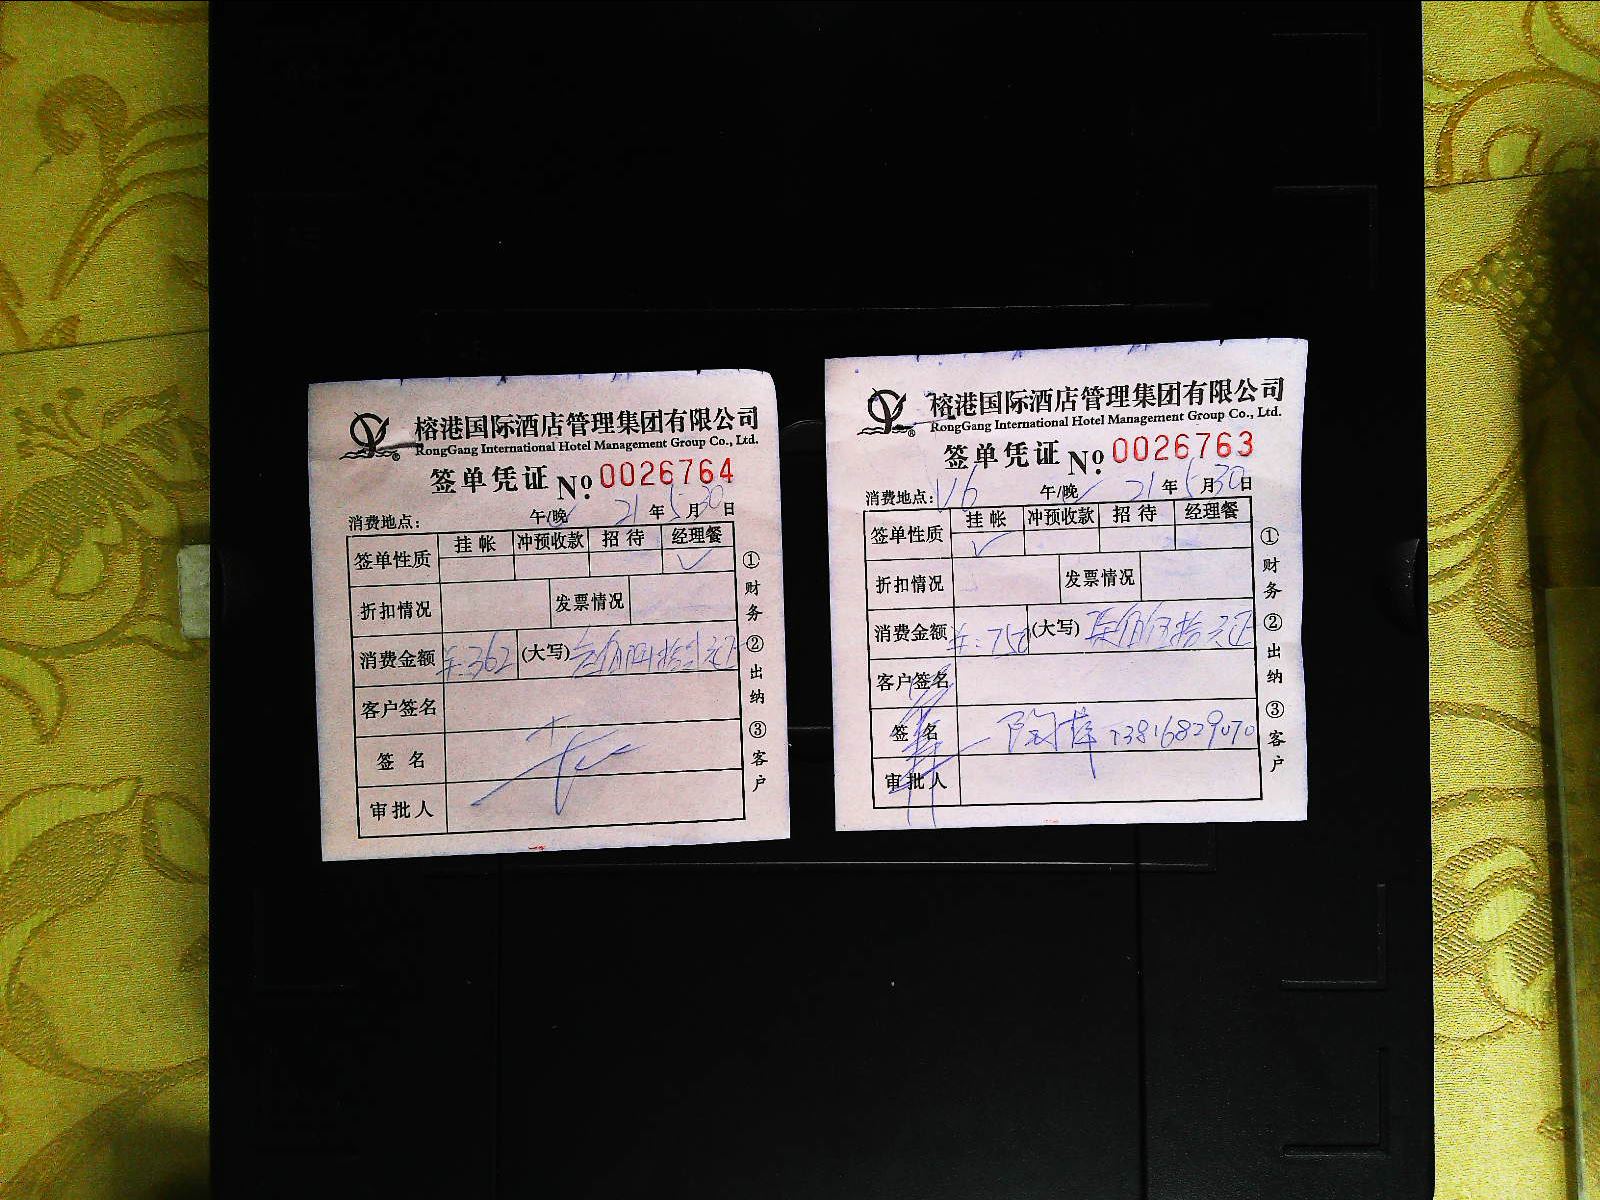 榕港国际酒店管理集团有限公司
RongGang International Hotel Management Group Co., Ltd.
签单凭证 No. 0026764
消费地点: 午/晚 21年5月30日
签单性质 挂帐 冲预收款 招待 经理餐
✓
折扣情况 发票情况
消费金额 ¥:362 (大写)叁佰陆拾贰元正
客户签名
签名
审批人
①财务 ②出纳 ③客户
榕港国际酒店管理集团有限公司
RongGang International Hotel Management Group Co., Ltd.
签单凭证 No. 0026763
消费地点: V6 午/晚✓ 21年5月30日
签单性质 挂帐 冲预收款 招待 经理餐
✓
折扣情况 发票情况
消费金额 ¥:750 (大写)柒佰伍拾元正
客户签名
签名 陶萍 13816829070
审批人
①财务 ②出纳 ③客户